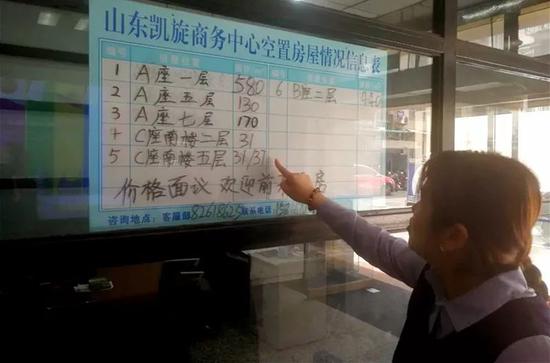 山东凯旋商务中心空置房屋情况信息表
编号 房屋位置 面积 编号 房屋位置
1 A座一层 580 6 B座二层
2 A座五层 130
3 A座七层 170
4 C座南楼二层 31
5 C座南楼五层 31/37
价格面议 欢迎前 房
咨询地点：客服部 82618625 联系电话